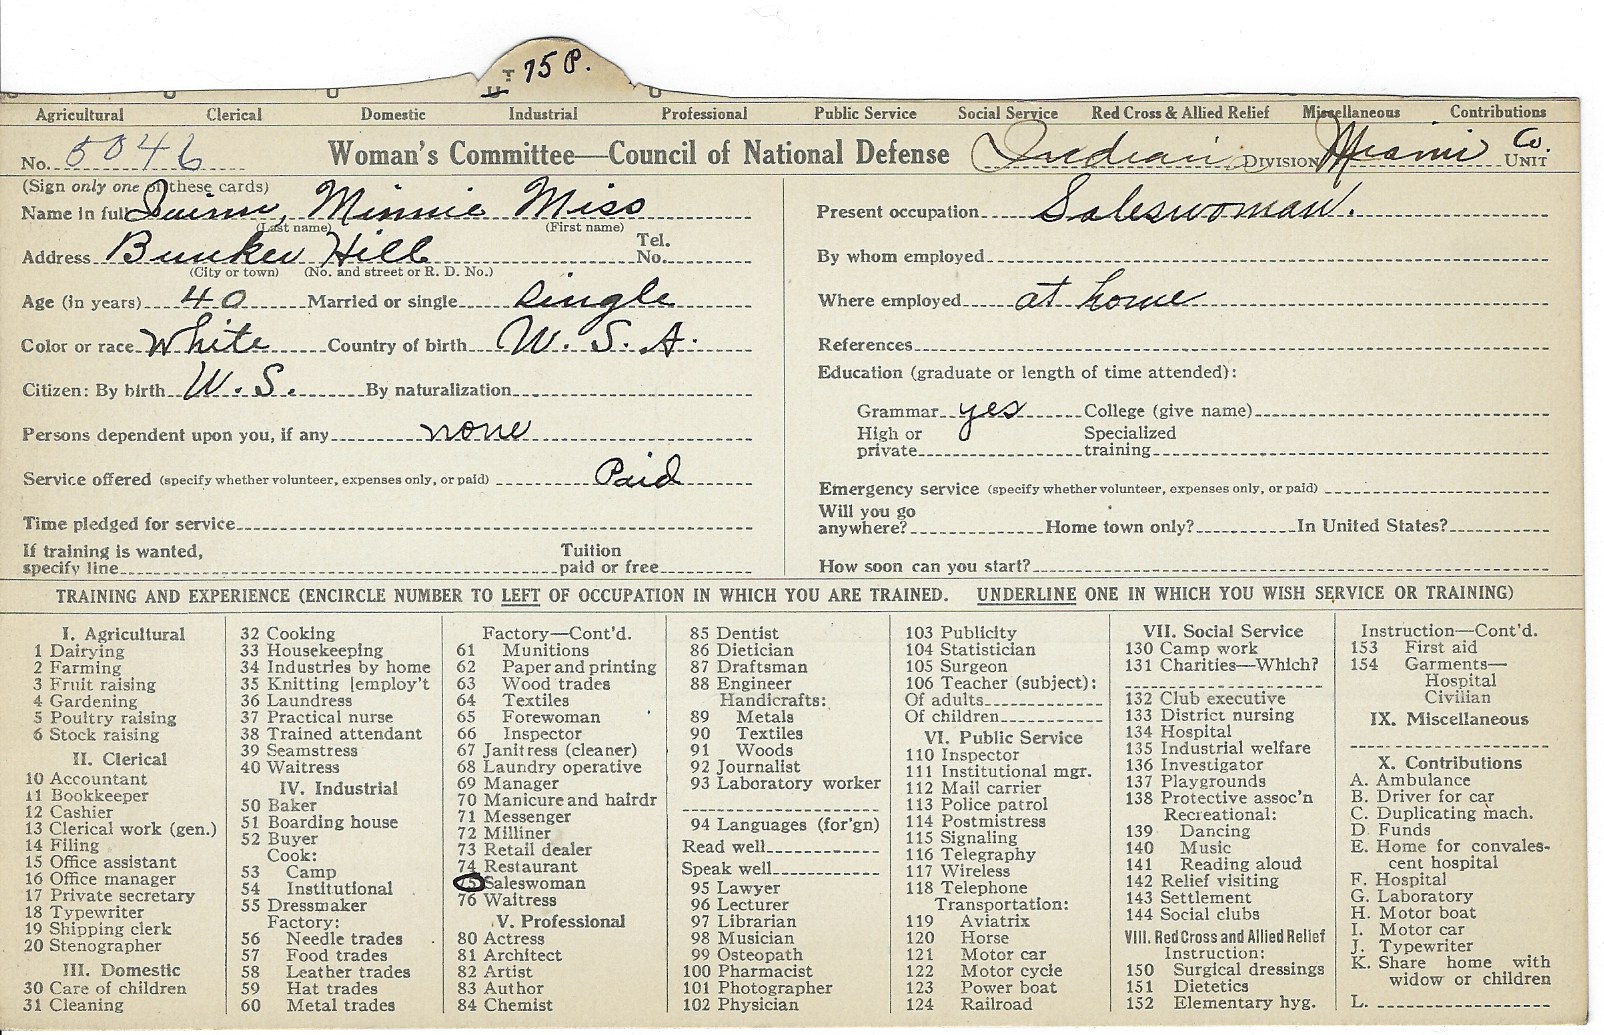 T 75 P.
U
Agricultural Clerical Domestic Industrial Professional Public Service Social Service Red Cross & Allied Relief Miscellaneous Contributions
No. 5046 Woman's Committee—Council of National Defense Indiana DIVISION Miami Co. UNIT
(Sign only one of these cards)
Name in full Quinn, Minnie Miss
(Last name) (First name)
Address Bunker Hill Tel. No.
(City or town) (No. and street or R. D. No.)
Age (in years) 40 Married or single single
Color or race White Country of birth U. S. A.
Citizen: By birth U. S. By naturalization
Persons dependent upon you, if any none
Service offered (specify whether volunteer, expenses only, or paid) Paid
Time pledged for service
If training is wanted, specify line Tuition paid or free
Present occupation Saleswoman.
By whom employed
Where employed at home
References
Education (graduate or length of time attended):
Grammar yes College (give name)
High or private Specialized training
Emergency service (specify whether volunteer, expenses only, or paid)
Will you go anywhere? Home town only? In United States?
How soon can you start?
TRAINING AND EXPERIENCE (ENCIRCLE NUMBER TO LEFT OF OCCUPATION IN WHICH YOU ARE TRAINED. UNDERLINE ONE IN WHICH YOU WISH SERVICE OR TRAINING)
I. Agricultural
1 Dairying
2 Farming
3 Fruit raising
4 Gardening
5 Poultry raising
6 Stock raising
II. Clerical
10 Accountant
11 Bookkeeper
12 Cashier
13 Clerical work (gen.)
14 Filing
15 Office assistant
16 Office manager
17 Private secretary
18 Typewriter
19 Shipping clerk
20 Stenographer
III. Domestic
30 Care of children
31 Cleaning
32 Cooking
33 Housekeeping
34 Industries by home
35 Knitting [employ't
36 Laundress
37 Practical nurse
38 Trained attendant
39 Seamstress
40 Waitress
IV. Industrial
50 Baker
51 Boarding house
52 Buyer
Cook:
53 Camp
54 Institutional
55 Dressmaker
Factory:
56 Needle trades
57 Food trades
58 Leather trades
59 Hat trades
60 Metal trades
Factory—Cont'd.
61 Munitions
62 Paper and printing
63 Wood trades
64 Textiles
65 Forewoman
66 Inspector
67 Janitress (cleaner)
68 Laundry operative
69 Manager
70 Manicure and hairdr
71 Messenger
72 Milliner
73 Retail dealer
74 Restaurant
75 Saleswoman
76 Waitress
V. Professional
80 Actress
81 Architect
82 Artist
83 Author
84 Chemist
85 Dentist
86 Dietician
87 Draftsman
88 Engineer
Handicrafts:
89 Metals
90 Textiles
91 Woods
92 Journalist
93 Laboratory worker
94 Languages (for'gn)
Read well
Speak well
95 Lawyer
96 Lecturer
97 Librarian
98 Musician
99 Osteopath
100 Pharmacist
101 Photographer
102 Physician
103 Publicity
104 Statistician
105 Surgeon
106 Teacher (subject):
Of adults
Of children
VI. Public Service
110 Inspector
111 Institutional mgr.
112 Mail carrier
113 Police patrol
114 Postmistress
115 Signaling
116 Telegraphy
117 Wireless
118 Telephone
Transportation:
119 Aviatrix
120 Horse
121 Motor car
122 Motor cycle
123 Power boat
124 Railroad
VII. Social Service
130 Camp work
131 Charities—Which?
132 Club executive
133 District nursing
134 Hospital
135 Industrial welfare
136 Investigator
137 Playgrounds
138 Protective assoc'n
Recreational:
139 Dancing
140 Music
141 Reading aloud
142 Relief visiting
143 Settlement
144 Social clubs
VIII. Red Cross and Allied Relief
Instruction:
150 Surgical dressings
151 Dietetics
152 Elementary hyg.
Instruction—Cont'd.
153 First aid
154 Garments—
Hospital
Civilian
IX. Miscellaneous
X. Contributions
A. Ambulance
B. Driver for car
C. Duplicating mach.
D. Funds
E. Home for convales-
cent hospital
F. Hospital
G. Laboratory
H. Motor boat
I. Motor car
J. Typewriter
K. Share home with
widow or children
L.